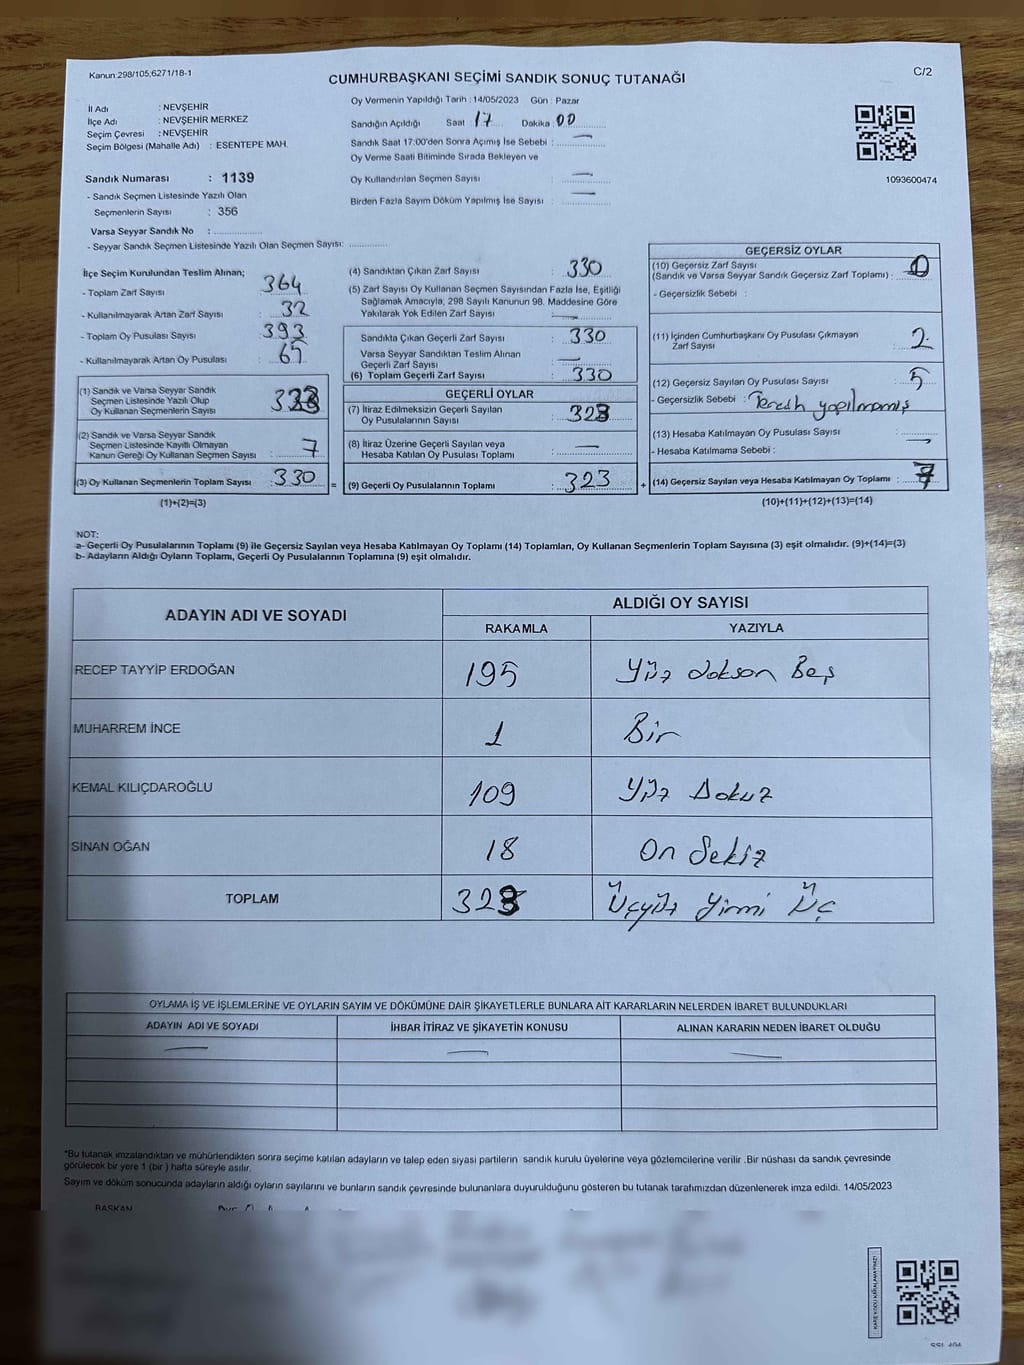 Kanun:298/105;6271/18-1
C/2
CUMHURBAŞKANI SEÇİMİ SANDIK SONUÇ TUTANAĞI
İl Adı : NEVŞEHİR
İlçe Adı : NEVŞEHİR MERKEZ
Seçim Çevresi : NEVŞEHİR
Seçim Bölgesi (Mahalle Adı) : ESENTEPE MAH.
Sandık Numarası : 1139
- Sandık Seçmen Listesinde Yazılı Olan
Seçmenlerin Sayısı : 356
Varsa Seyyar Sandık No : ................
- Seyyar Sandık Seçmen Listesinde Yazılı Olan Seçmen Sayısı: ............
Oy Vermenin Yapıldığı Tarih : 14/05/2023 Gün : Pazar
Sandığın Açıldığı Saat : 17 Dakika : 00
Sandık Saat 17:00'den Sonra Açımış İse Sebebi : —
Oy Verme Saati Bitiminde Sırada Bekleyen ve
Oy Kullandırılan Seçmen Sayısı : —
Birden Fazla Sayım Döküm Yapılmış İse Sayısı : —
1093600474
İlçe Seçim Kurulundan Teslim Alınan;
- Toplam Zarf Sayısı : 364
- Kullanılmayarak Artan Zarf Sayısı : 32
- Toplam Oy Pusulası Sayısı : 393
- Kullanılmayarak Artan Oy Pusulası :
(1) Sandık ve Varsa Seyyar Sandık
Seçmen Listesinde Yazılı Olup
Oy Kullanan Seçmenlerin Sayısı :
(2) Sandık ve Varsa Seyyar Sandık
Seçmen Listesinde Kayıtlı Olmayan
Kanun Gereği Oy Kullanan Seçmen Sayısı : 7
(3) Oy Kullanan Seçmenlerin Toplam Sayısı : 330 =
(1)+(2)=(3)
(4) Sandıktan Çıkan Zarf Sayısı : 330
(5) Zarf Sayısı Oy Kullanan Seçmen Sayısından Fazla İse, Eşitliği
Sağlamak Amacıyla, 298 Sayılı Kanunun 98. Maddesine Göre
Yakılarak Yok Edilen Zarf Sayısı : —
Sandıkta Çıkan Geçerli Zarf Sayısı : 330
Varsa Seyyar Sandıktan Teslim Alınan
Geçerli Zarf Sayısı : —
(6) Toplam Geçerli Zarf Sayısı : 330
GEÇERLİ OYLAR
(7) İtiraz Edilmeksizin Geçerli Sayılan
Oy Pusulalarının Sayısı : 323
(8) İtiraz Üzerine Geçerli Sayılan veya
Hesaba Katılan Oy Pusulası Toplamı : —
(9) Geçerli Oy Pusulalarının Toplamı : 323 +
GEÇERSİZ OYLAR
(10) Geçersiz Zarf Sayısı
(Sandık ve Varsa Seyyar Sandık Geçersiz Zarf Toplamı) : 0
- Geçersizlik Sebebi :
(11) İçinden Cumhurbaşkanı Oy Pusulası Çıkmayan
Zarf Sayısı : 2
(12) Geçersiz Sayılan Oy Pusulası Sayısı : 5
- Geçersizlik Sebebi : Tercih yapılmamış
(13) Hesaba Katılmayan Oy Pusulası Sayısı : —
- Hesaba Katılmama Sebebi :
(14) Geçersiz Sayılan veya Hesaba Katılmayan Oy Toplamı : 7
(10)+(11)+(12)+(13)=(14)
NOT:
a- Geçerli Oy Pusulalarının Toplamı (9) ile Geçersiz Sayılan veya Hesaba Katılmayan Oy Toplamı (14) Toplamları, Oy Kullanan Seçmenlerin Toplam Sayısına (3) eşit olmalıdır. (9)+(14)=(3)
b- Adayların Aldığı Oyların Toplamı, Geçerli Oy Pusulalarının Toplamına (9) eşit olmalıdır.
ADAYIN ADI VE SOYADI ALDIĞI OY SAYISI
RAKAMLA YAZIYLA
RECEP TAYYİP ERDOĞAN 195 Yüz doksan Beş
MUHARREM İNCE 1 Bir
KEMAL KILIÇDAROĞLU 109 Yüz Dokuz
SİNAN OĞAN 18 On Sekiz
TOPLAM 323 Üçyüz Yirmi Üç
OYLAMA İŞ VE İŞLEMLERİNE VE OYLARIN SAYIM VE DÖKÜMÜNE DAİR ŞİKAYETLERLE BUNLARA AİT KARARLARIN NELERDEN İBARET BULUNDUKLARI
ADAYIN ADI VE SOYADI İHBAR İTİRAZ VE ŞİKAYETİN KONUSU ALINAN KARARIN NEDEN İBARET OLDUĞU
— — —
*Bu tutanak imzalandıktan ve mühürlendikten sonra seçime katılan adayların ve talep eden siyasi partilerin sandık kurulu üyelerine veya gözlemcilerine verilir .Bir nüshası da sandık çevresinde
görülecek bir yere 1 (bir ) hafta süreyle asılır.
Sayım ve döküm sonucunda adayların aldığı oyların sayılarını ve bunların sandık çevresinde bulunanlara duyurulduğunu gösteren bu tutanak tarafımızdan düzenlenerek imza edildi. 14/05/2023
BAŞKAN